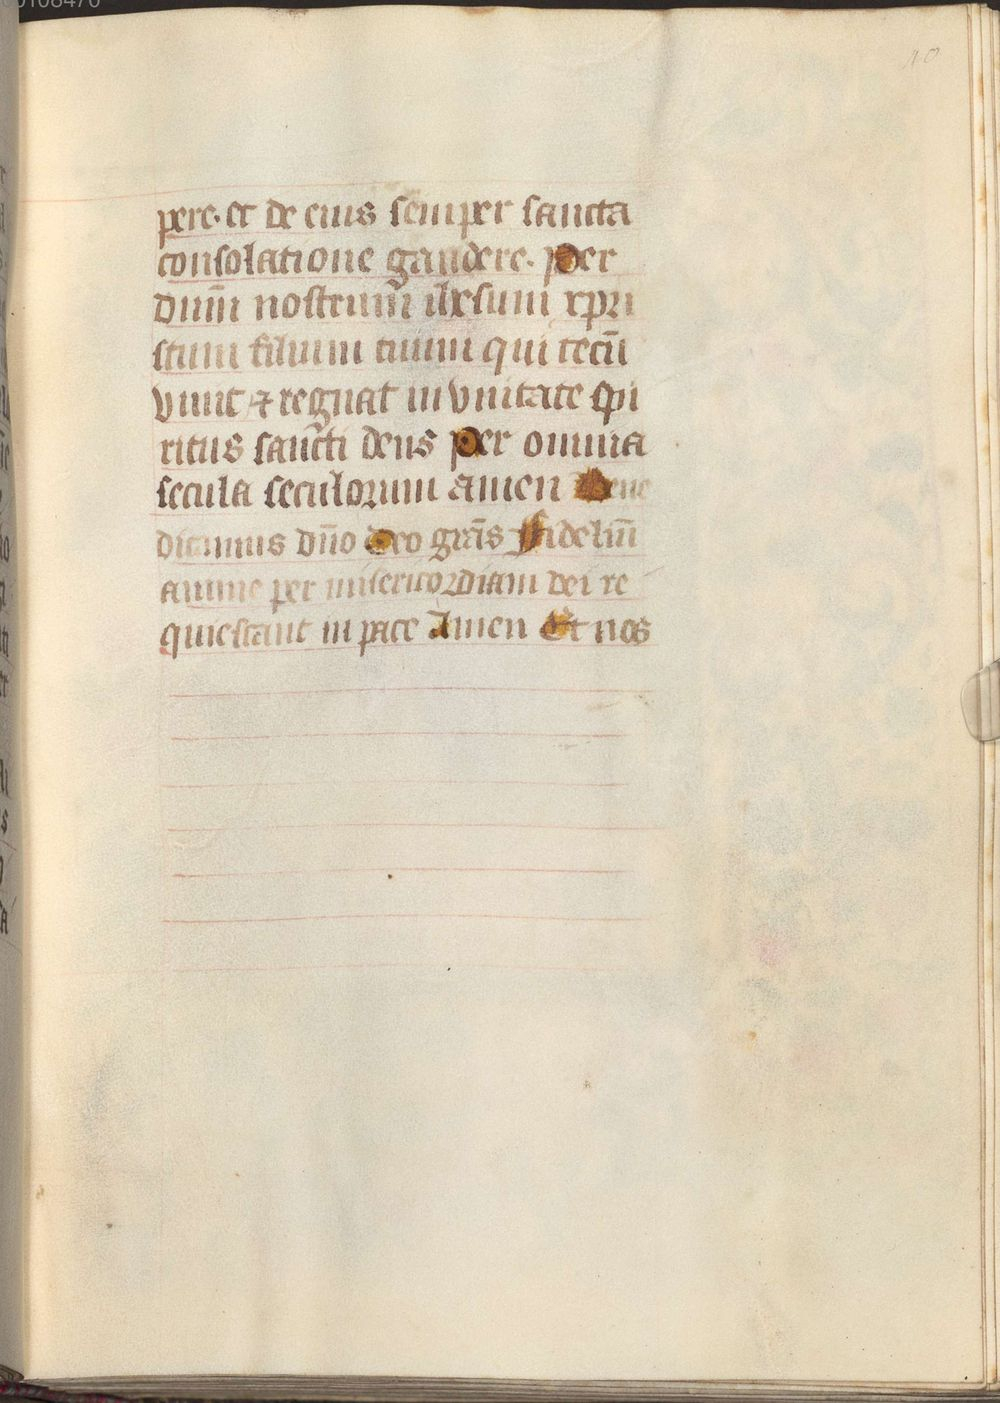 40
pere. et de eius semper sancta
consolatione gaudere. Per
dnm̄ nostrum̄ ihesum xpri
stum filium tuum qui tecū
viuit ⁊ regnat in vnitate spi
ritus sancti deus Per omnia
secula seculorum amen Bene
dicamus dn̄o Deo grās Fidelium̄
anime per misericordiam dei re
quiescant in pace Amen Et nos